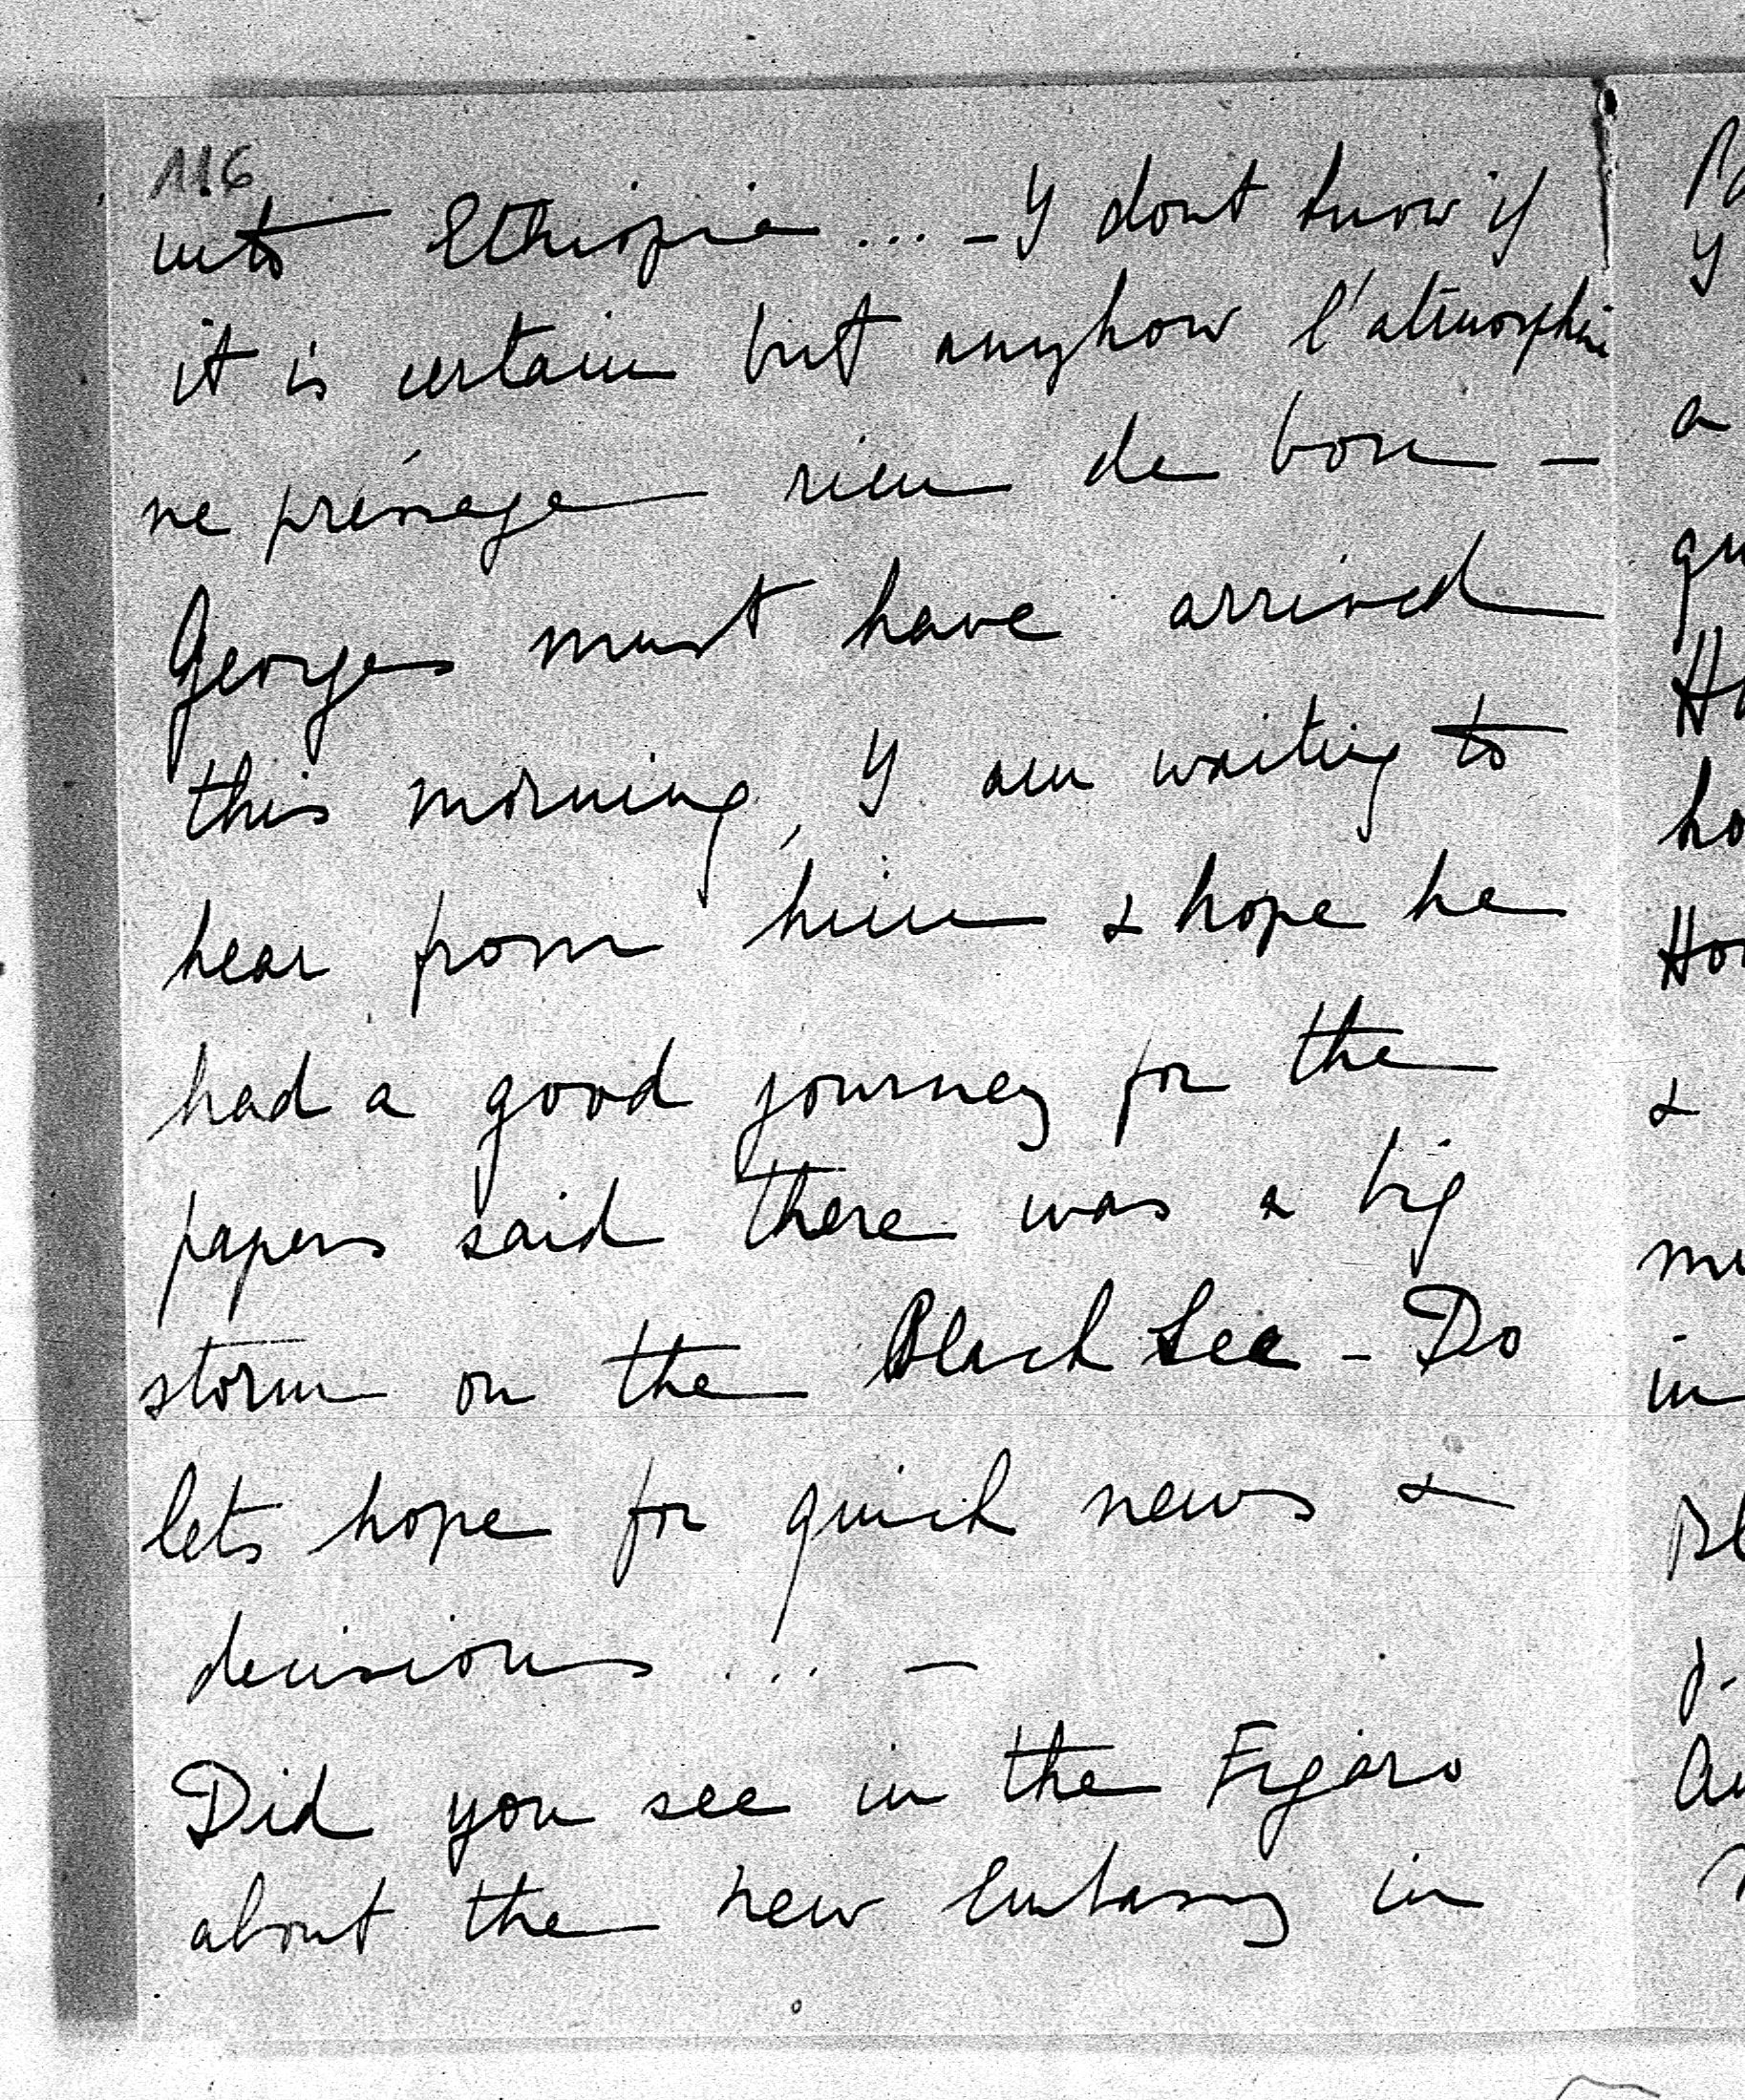 116
into Ethiopia ... - I dont know if
it is certain but anyhow l'atmosphère
ne présage rien de bon -
Georges must have arrived
this morning, I am waiting to
hear from him & hope he
had a good journey for the
papers said there was a big
storm on the Black Sea - Do
lets hope for quick news &
decisions ... -
Did you see in the Figaro
about the new Embassy in